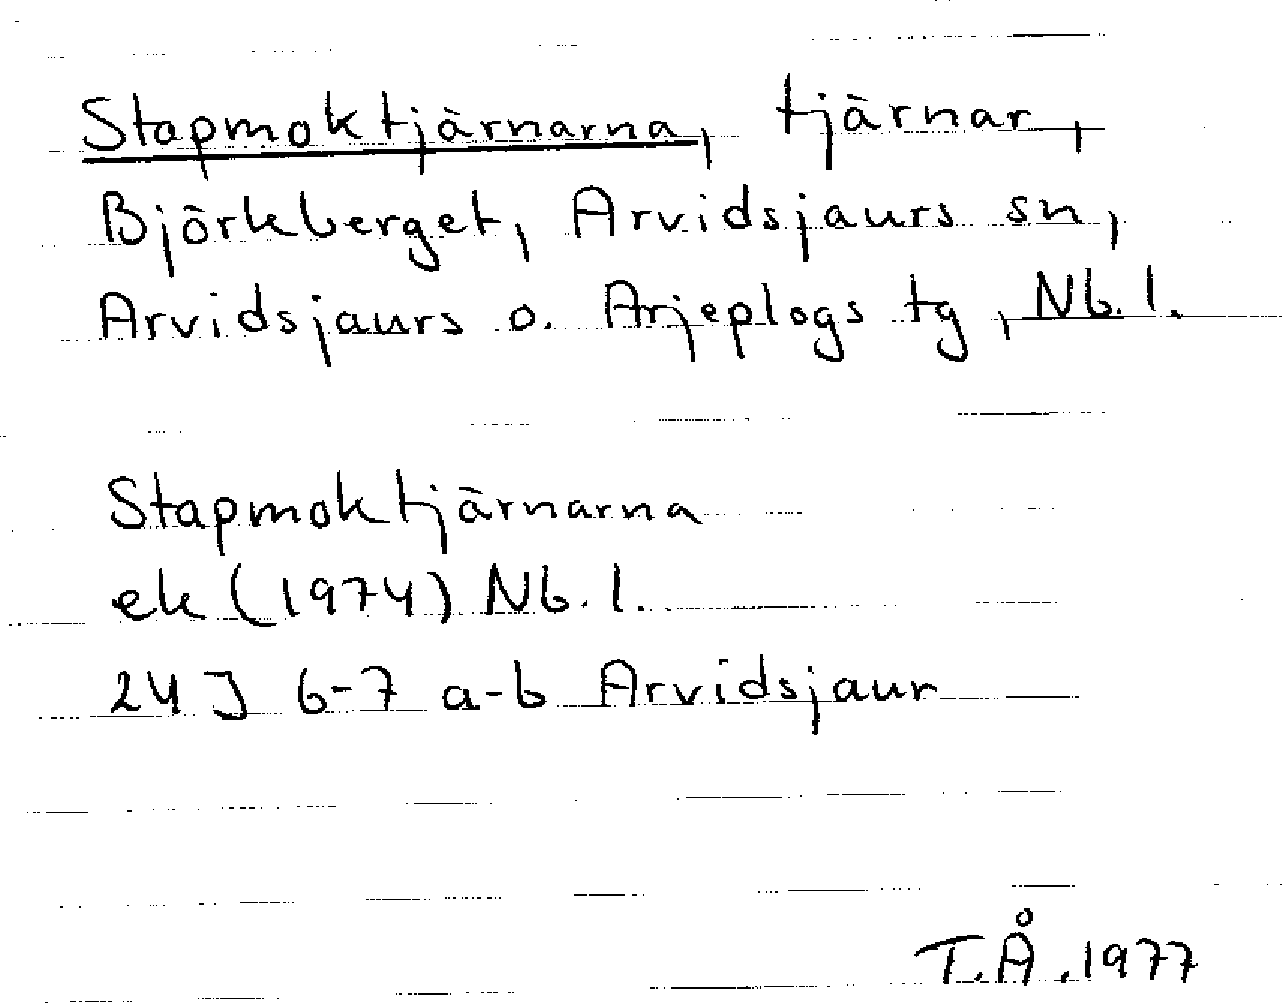 Stapmoktjärnarna, tjärnar,
Björkberget, Arvidsjaurs sn,
Arvidsjaurs o. Arjeplogs tg, Nb. l.
Stapmoktjärnarna
ek (1974) Nb. l.
24 J 6-7 a-b Arvidsjaur
T.Å. 1977